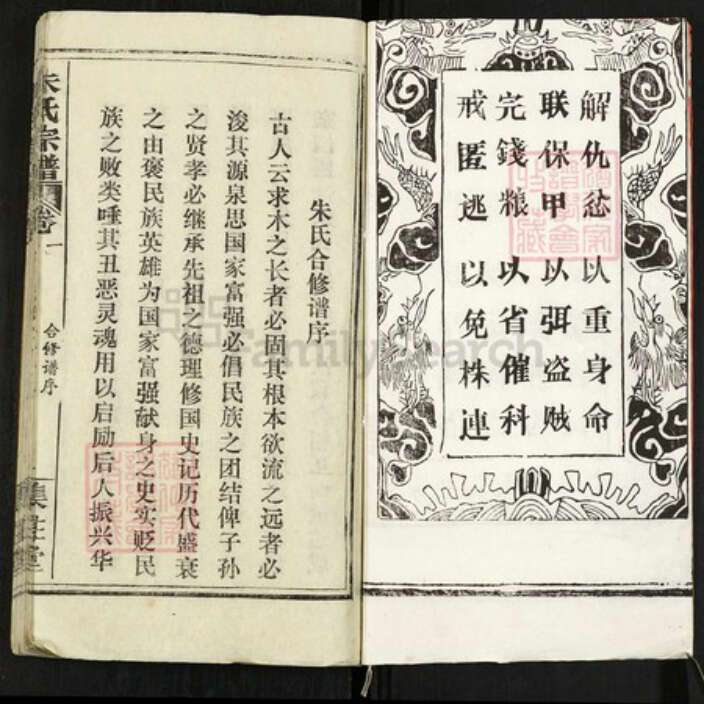 解仇忿以重身命
联保甲以弭盗贼
完錢粮以省催科
戒匿逃以免株連
朱氏合修谱序
古人云求木之长者必固其根本欲流之远者必
浚其源泉思国家富强必倡民族之团结俾子孙
之贤孝必继承先祖之德理修国史记历代盛衰
之由褒民族英雄为国家富强献身之史实贬民
族之败类唾其丑恶灵魂用以启励后人振兴华
朱氏宗譜
卷一
合修谱序
FamilySearch